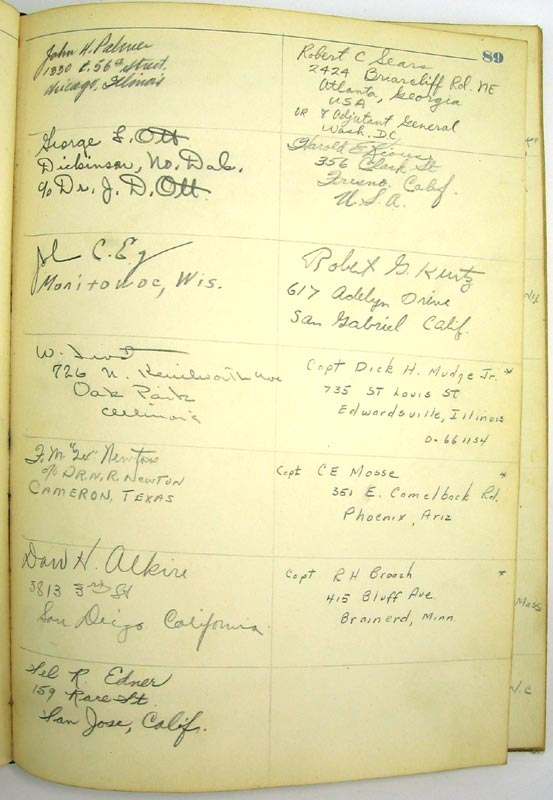 89
John H. Palmer
1330 E. 56th Street,
Chicago, Illinois
George L. Ott
Dickinson, No. Dak.
c/o Dr. J. D. Ott.
C.
Manitowoc, Wis.
W.
726 N. Kenilworth Ave
Oak Park
Illinois
F. M. "Lew" Newton
c/o DR. N. R. NEWTON
CAMERON, TEXAS
Dow H. Alkire
3813 3rd St
San Diego California.
R. Edner
159 Race St.
San Jose, Calif.
Robert C Sears
2424 Briarcliff Rd. NE
Atlanta, Georgia
USA
OR % Adjutant General
Wash. DC.
Harold E
356 Clark St
Fresno. Calif.
U.S.A.
Robert G. Kurtz
617 Adelyn Drive
San Gabriel Calif.
Capt Dick H. Mudge Jr. *
735 ST Louis ST
Edwardsville, Illinois
0-661154
Capt CE Mosse *
351 E. Camelback Rd.
Phoenix, Ariz
Capt R H Broach *
415 Bluff Ave
Brainerd, Minn
Mass